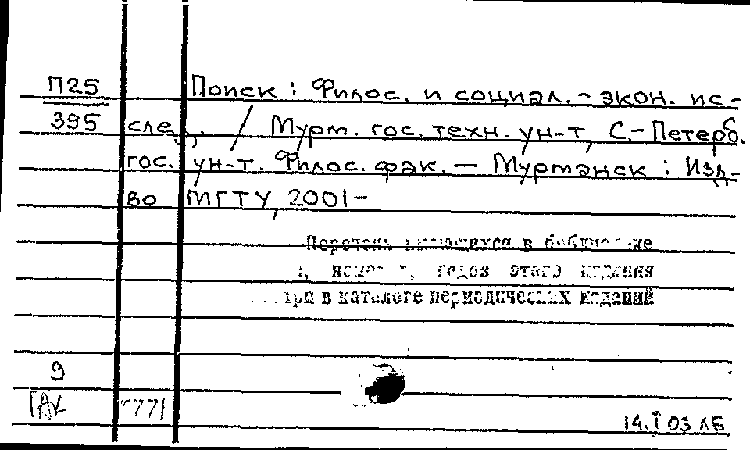 П25 Поиск : Филос. и социал.-экон. ис-
395 след. / Мурм. гос. техн. ун-т, С.-Петерб.
гос. ун-т. Филос. фак. — Мурманск : Изд-
во МГТУ, 2001-
в библиотеке
годов этого издания
в каталоге периодических изданий
9
14.I 03 ЛБ